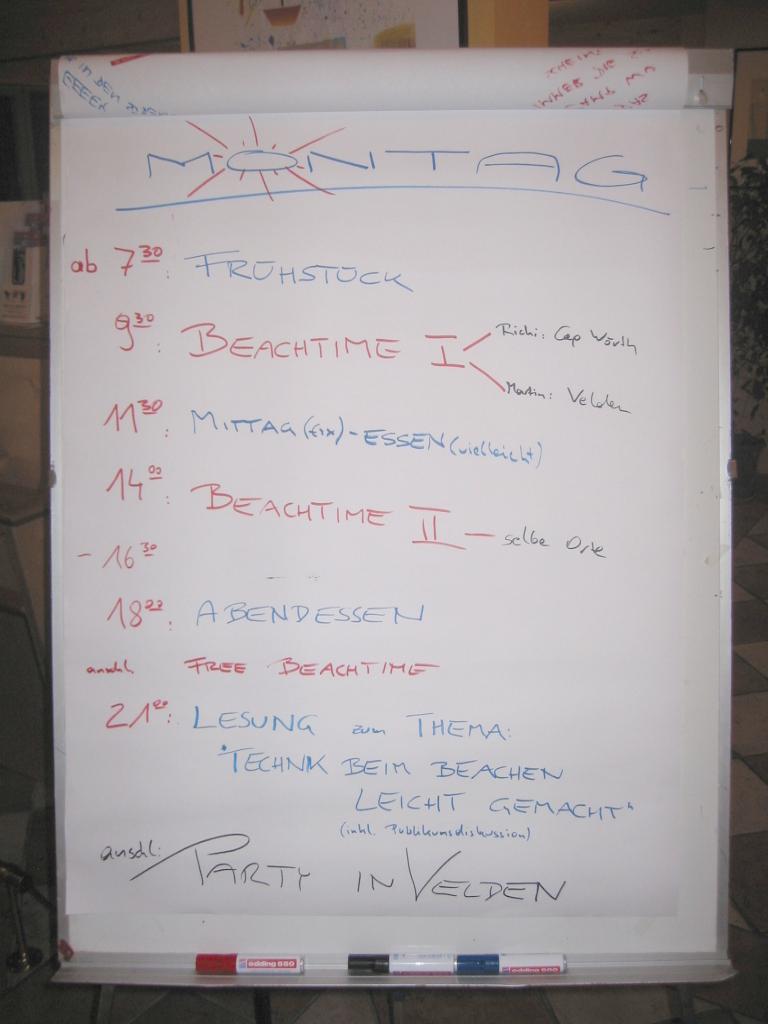 IN DEN
EEEEY
MONTAG
ab 7³⁰: FRÜHSTÜCK
9³⁰: BEACHTIME I
Richi: Cap Wörth
Martin: Velden
11³⁰: MITTAG (fix) - ESSEN (vielleicht)
14⁰⁰: BEACHTIME II — selbe Orte
- 16³⁰
18²²: ABENDESSEN
anschl. FREE BEACHTIME
21²⁰: LESUNG zum THEMA:
"TECHNIK BEIM BEACHEN
LEICHT GEMACHT"
(inkl. Publikumsdiskussion)
anschl: PARTY IN VELDEN
edding 550
edding 550